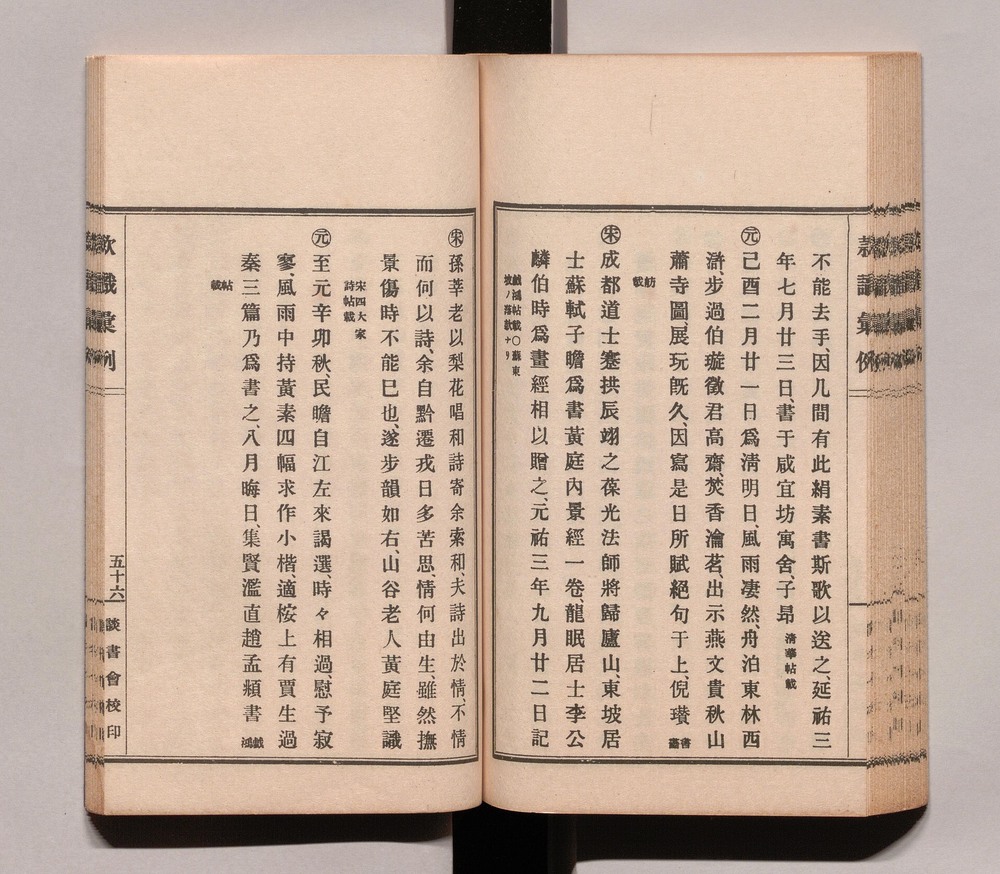 不能去手、因几間有此絹素書斯歌以送之、延祐三
年七月廿三日、書于咸宜坊寓舍、子昂 清華帖載
㊂元 己酉二月廿一日爲淸明日、風雨凄然、舟泊東林西
滸、步過伯璇徵君高齋、焚香瀹茗、出示燕文貴秋山
蕭寺圖、展玩旣久、因寫是日所賦絕句于上、倪瓚 書畵
舫載
宋 成都道士蹇拱辰翊之葆光法師將歸廬山、東坡居
士蘇軾子瞻爲書黃庭內景經一卷、龍眠居士李公
麟伯時爲畫經相以贈之、元祐三年九月廿二日記
戲鴻帖載〇蘇東
坡ノ落款ナリ
宋 孫莘老以梨花唱和詩寄余索和、夫詩出於情、不情
而何以詩、余自黔遷戎日多苦思、情何由生、雖然撫
景傷時不能已也、遂步韻如右、山谷老人黃庭堅識
宋四大家
詩帖載
元 至元辛卯秋、民瞻自江左來謁選、時々相過、慰予寂
寥、風雨中持黃素四幅求作小楷、適桉上有賈生過
秦三篇乃爲書之、八月晦日、集賢濫直趙孟頫書 戲鴻
帖載
款識彙例
五十六
談書會校印